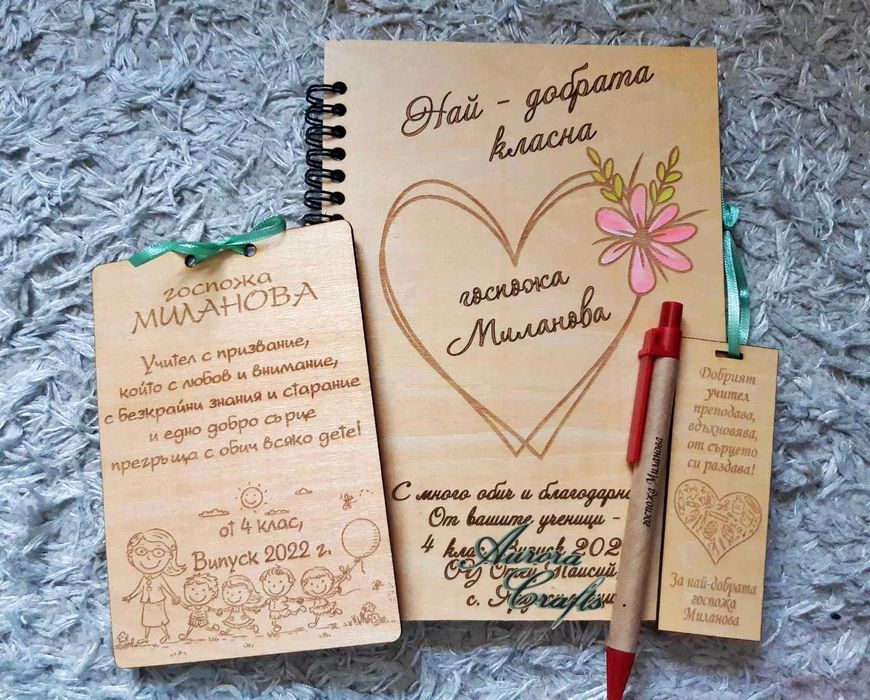 госпожа
МИЛАНОВА
Учител с призвание,
който с любов и внимание,
с безкрайни знания и старание
и едно добро сърце
прегръща с обич всяко дете!
от 4 клас,
Випуск 2022 г.
Най - добрата
класна
госпожа
Миланова
С много обич и
От вашите ученици -
4 клас, Випуск
ОУ Отец Паисий
с.
Aurora
Crafts
госпожа Миланова
Добрият
учител
преподава,
вдъхновява,
от сърцето
си раздава!
За най-добрата
госпожа
Миланова